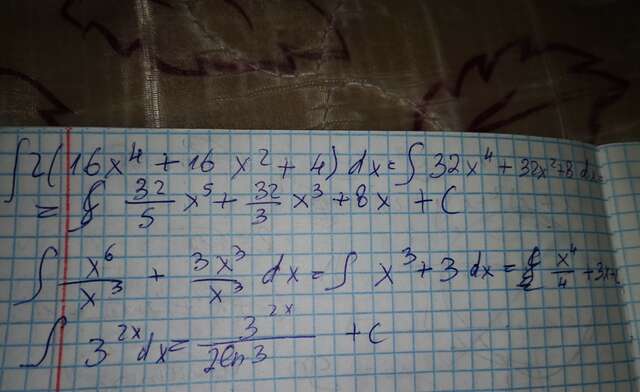 ∫ 2(16x⁴ + 16 x² + 4) dx = ∫ 32x⁴ + 32x² + 8 dx =
= 32/5 x⁵ + 32/3 x³ + 8x + C
∫ x⁶/x³ + 3x³/x³ dx = ∫ x³ + 3 dx = x⁴/4 + 3x +
∫ 3²ˣ dx = 3²ˣ/2ln3 + C